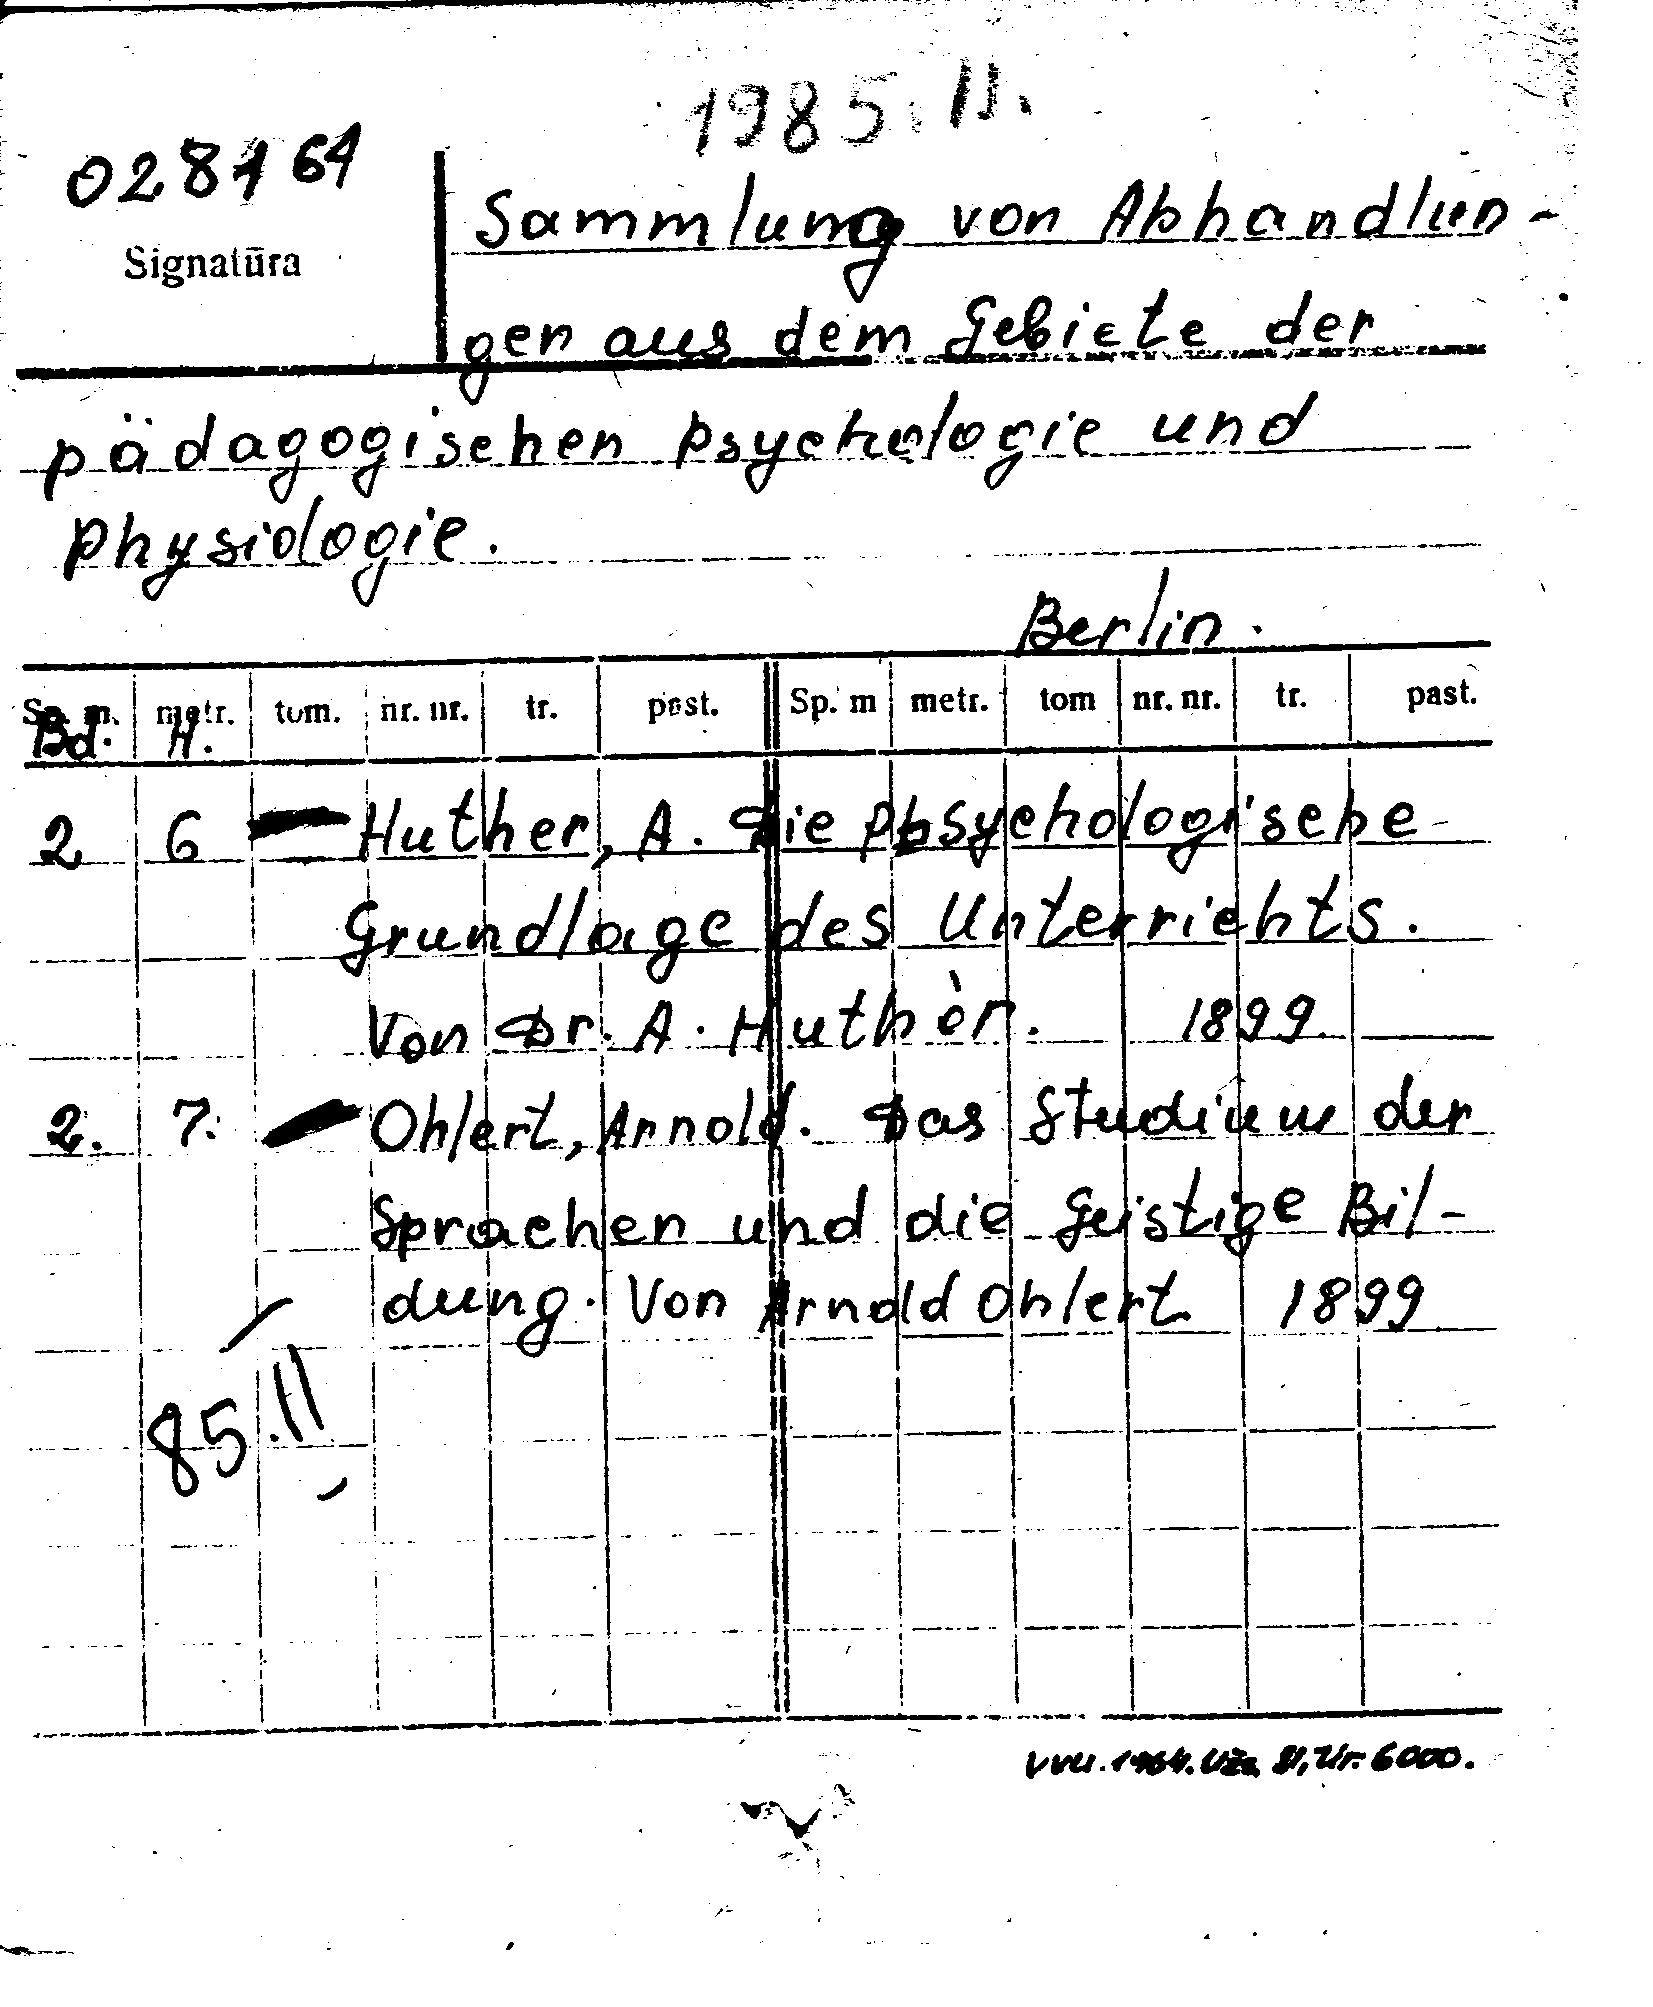 1985.II.
028164
Signatūra
Sammlung von Abhandlun-
gen aus dem Gebiete der
pädagogischen Psychologie und
Physiologie.
Berlin.
Sp. m. metr. tom. nr. nr. tr. past. Sp. m metr. tom nr. nr. tr. past.
Bd. H.
2 6 — Huther, A. Die Psychologische
Grundlage des Unterrichts.
Von Dr. A. Huther. 1899
2. 7. — Ohlert, Arnold. Das Studium der
Sprachen und die Geistige Bil-
dung. Von Arnold Ohlert 1899
85.II
VVU. 1964. Užs. Nr. 6000.